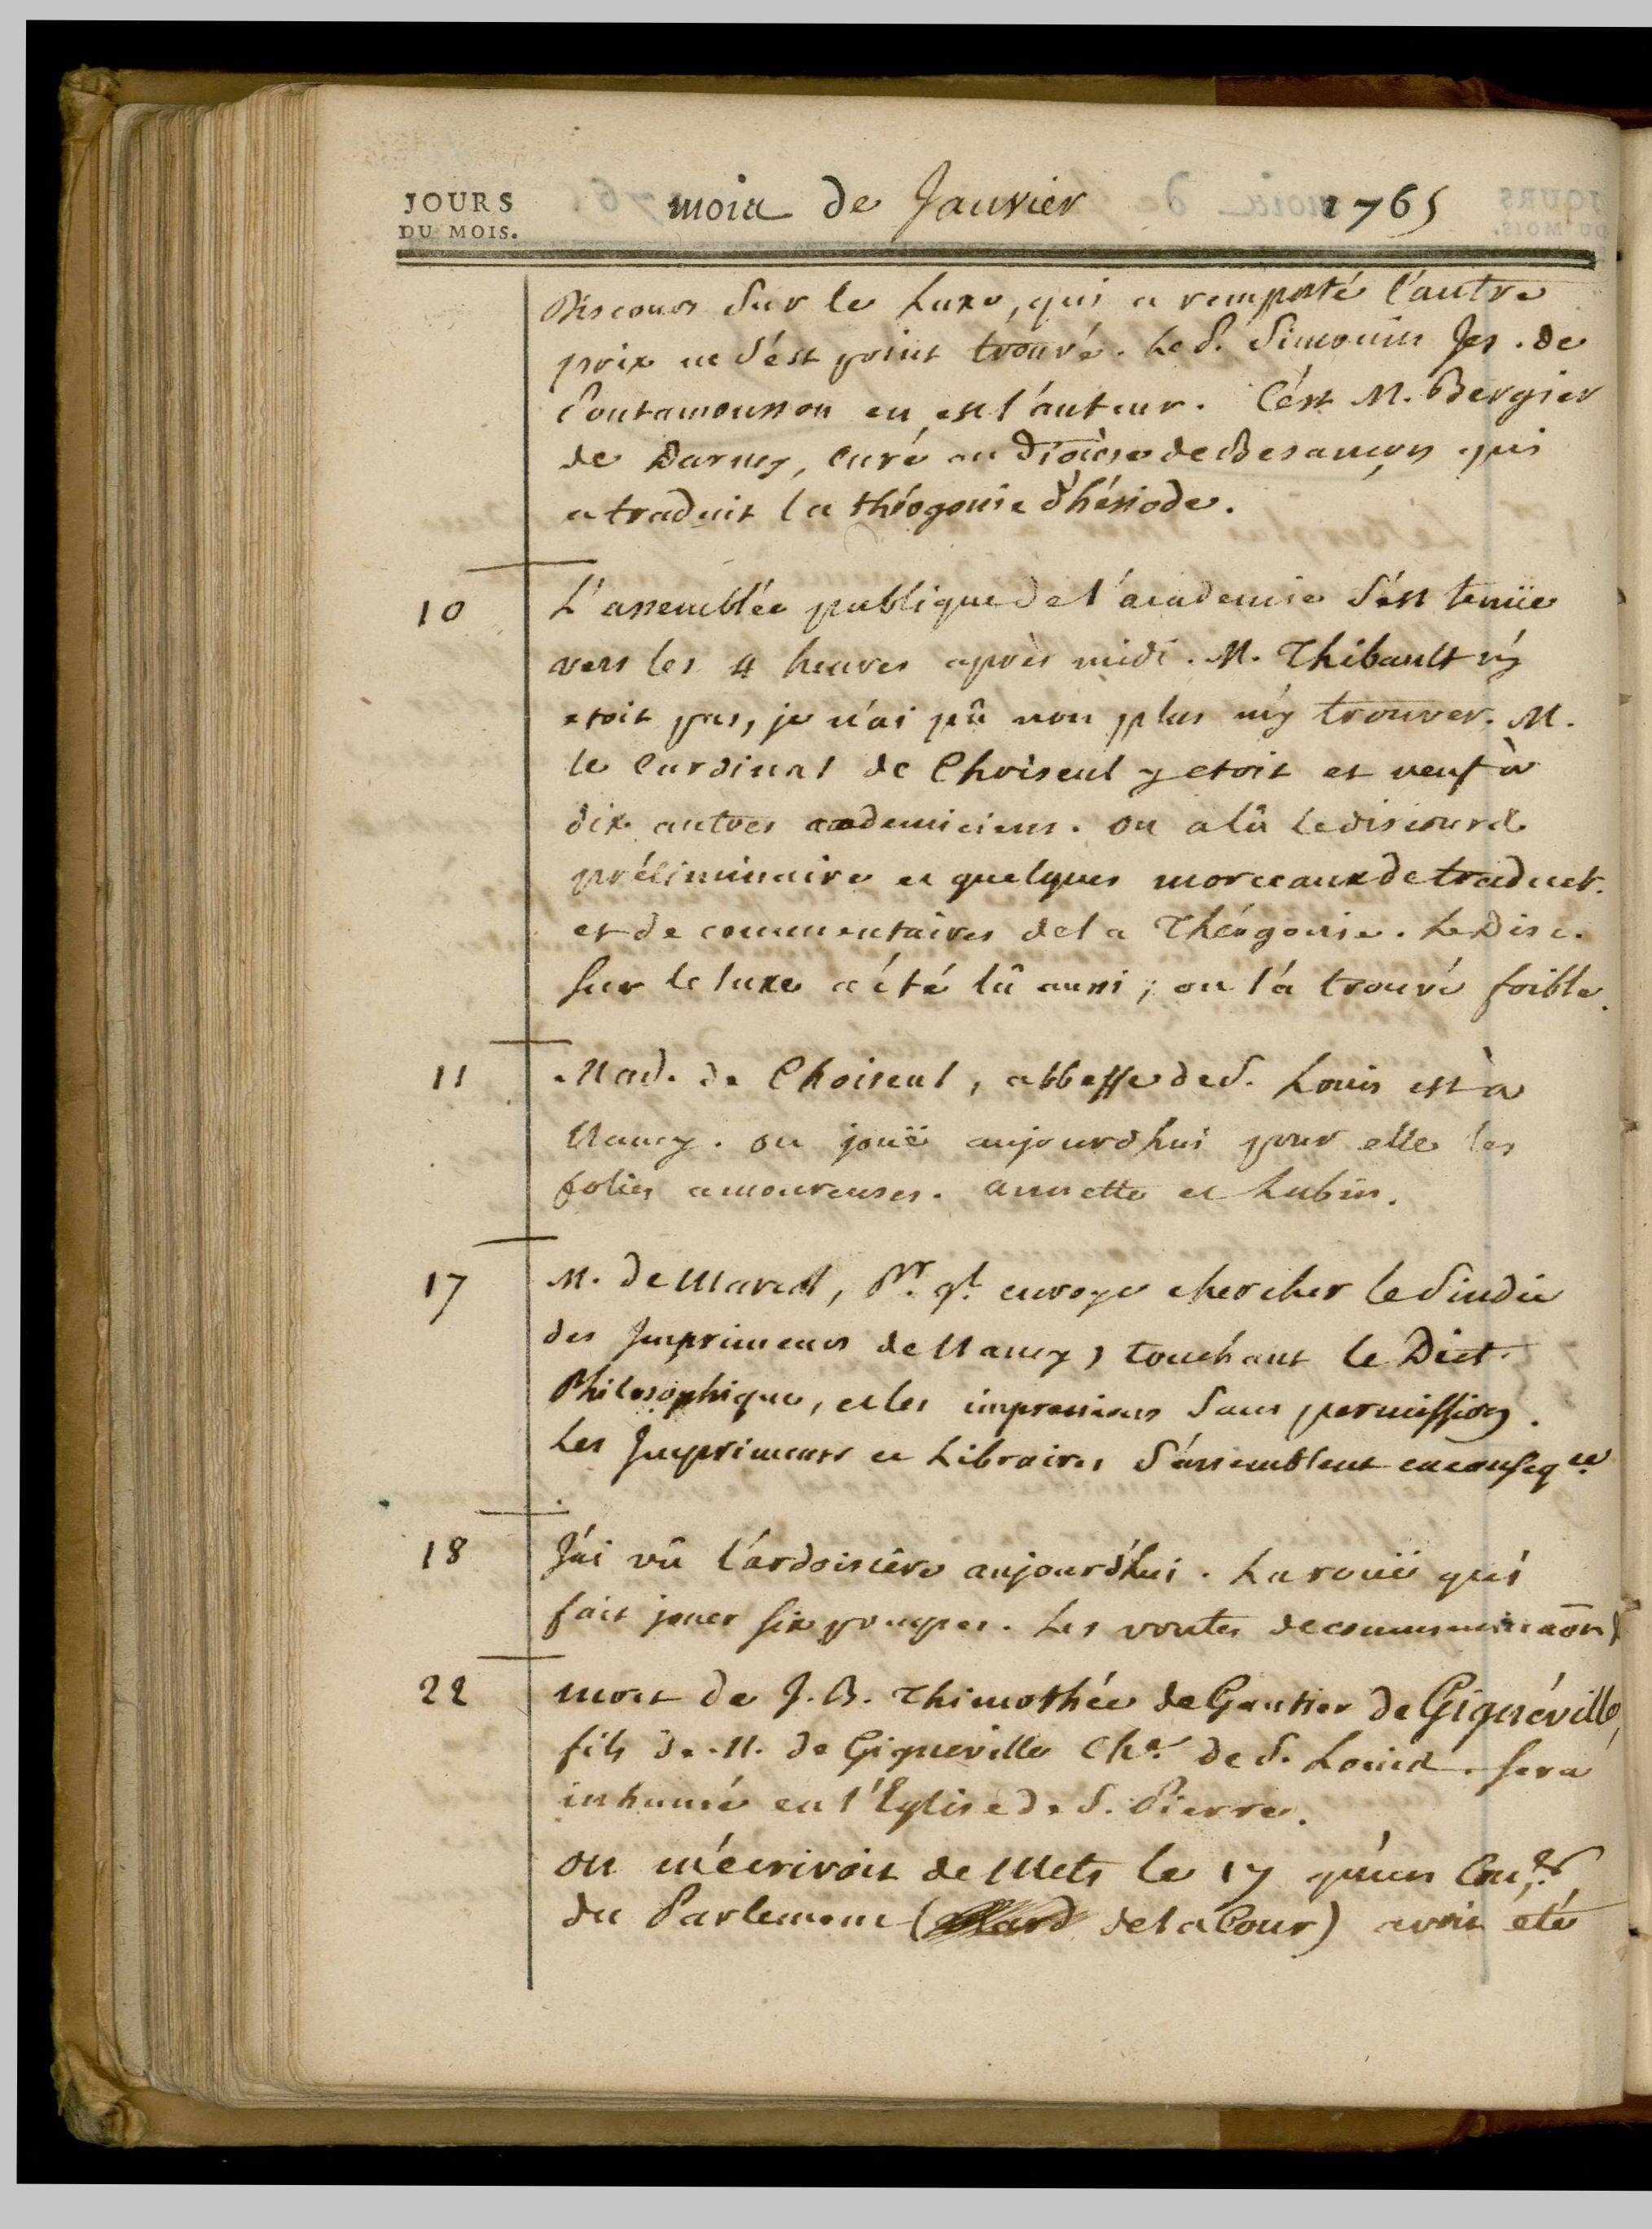 JOURS
DU MOIS.
mois de Janvier 1765
Discours Sur le Luxe, qui a remporté l'autre
prix ne s'est point trouvé. Le P. Simonin Jes. de
Pontamousson en est l'auteur. C'est M. Bergier
de Darney, curé au Diocèse de Besançon qui
a traduit la théogonie d'hésiode.
10 L'assemblée publique de l'academie s'est tenüe
vers les 4 heures après midi. M. Thibault n'y
etoit pas, je n'ai pû non plus m'y trouver. M.
le Cardinal de Choiseul y etoit et neuf à
dix autres academiciens. on a lû le discours
préliminaire et quelques morceaux de traduct.
et de commentaires de la Théogonie. Le Disc.
sur le luxe a été lû aussi; on l'a trouvé foible.
11 Mad. de Choiseul, abbesse de S. Louis est à
Nancy. on jouë aujourdhui pour elle les
folies amoureuses. annette et Lubin.
17 M. de Marcol, Pr. gl. envoye chercher le Sindic
des Imprimeurs de Nancy, touchant le Dict.
Philosophique, et les impressions sans permission.
Les Imprimeurs et Libraires s'assemblent en conseqce.
18 J'ai vû l'ardoisière aujourd'hui. La rouë qui
fait jouer six pompes. Les voutes de communicaōn
22 mort de J. B. Thimothée de Gautier de Gignéville,
fils de M. de Gigneville Cher. de S. Louis. sera
inhumé en l'Eglise de S. Pierre.
on m'écrivoit de Mets le 17 qu'un Coner
du Parlement ( de la Cour) avoit été